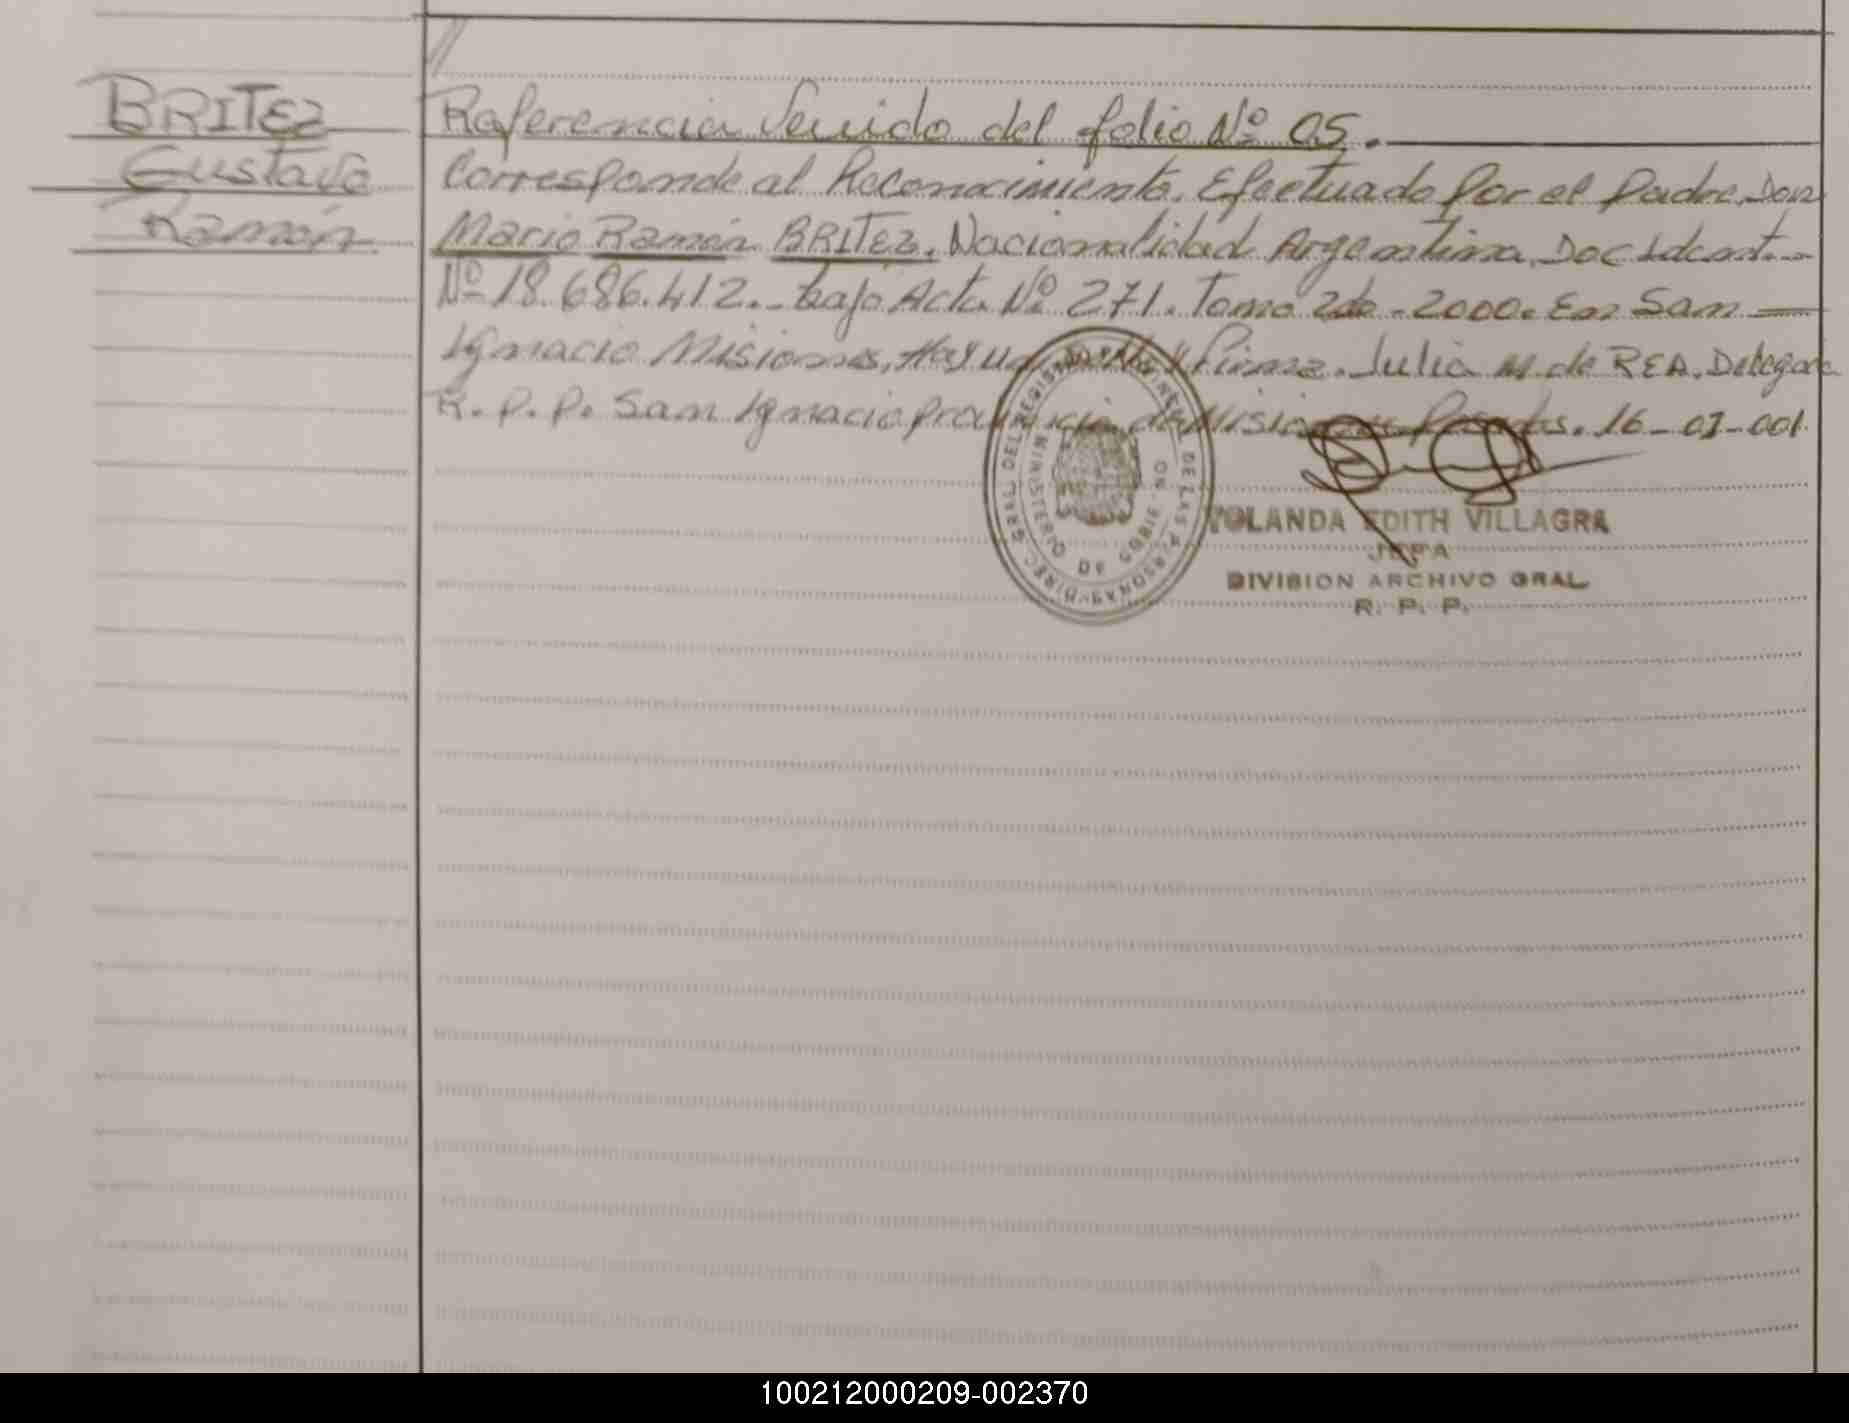 BRITEZ
Gustavo
Ramón
Referencia Venido del folio Nº 05.
Corresponde al Reconocimiento. Efectuado por el padre, Don
Mario Ramón BRITEZ. Nacionalidad Argentina, Doc Ident.-
Nº 18.686.412.- bajo Acta Nº 271. Tomo 2do. 2000. En San
Ignacio Misiones, Hay un Sello y Firma. Julia M. de REA. Delegada
R. P. P. San Ignacio provincia de Misiones Posadas. 16-01-001.
DIREC. GRAL. DEL REGISTRO PROVINCIAL DE LAS PERSONAS
MINISTERIO DE GOBIERNO
YOLANDA EDITH VILLAGRA
JEFA
DIVISION ARCHIVO GRAL
R. P. P.
100212000209-002370